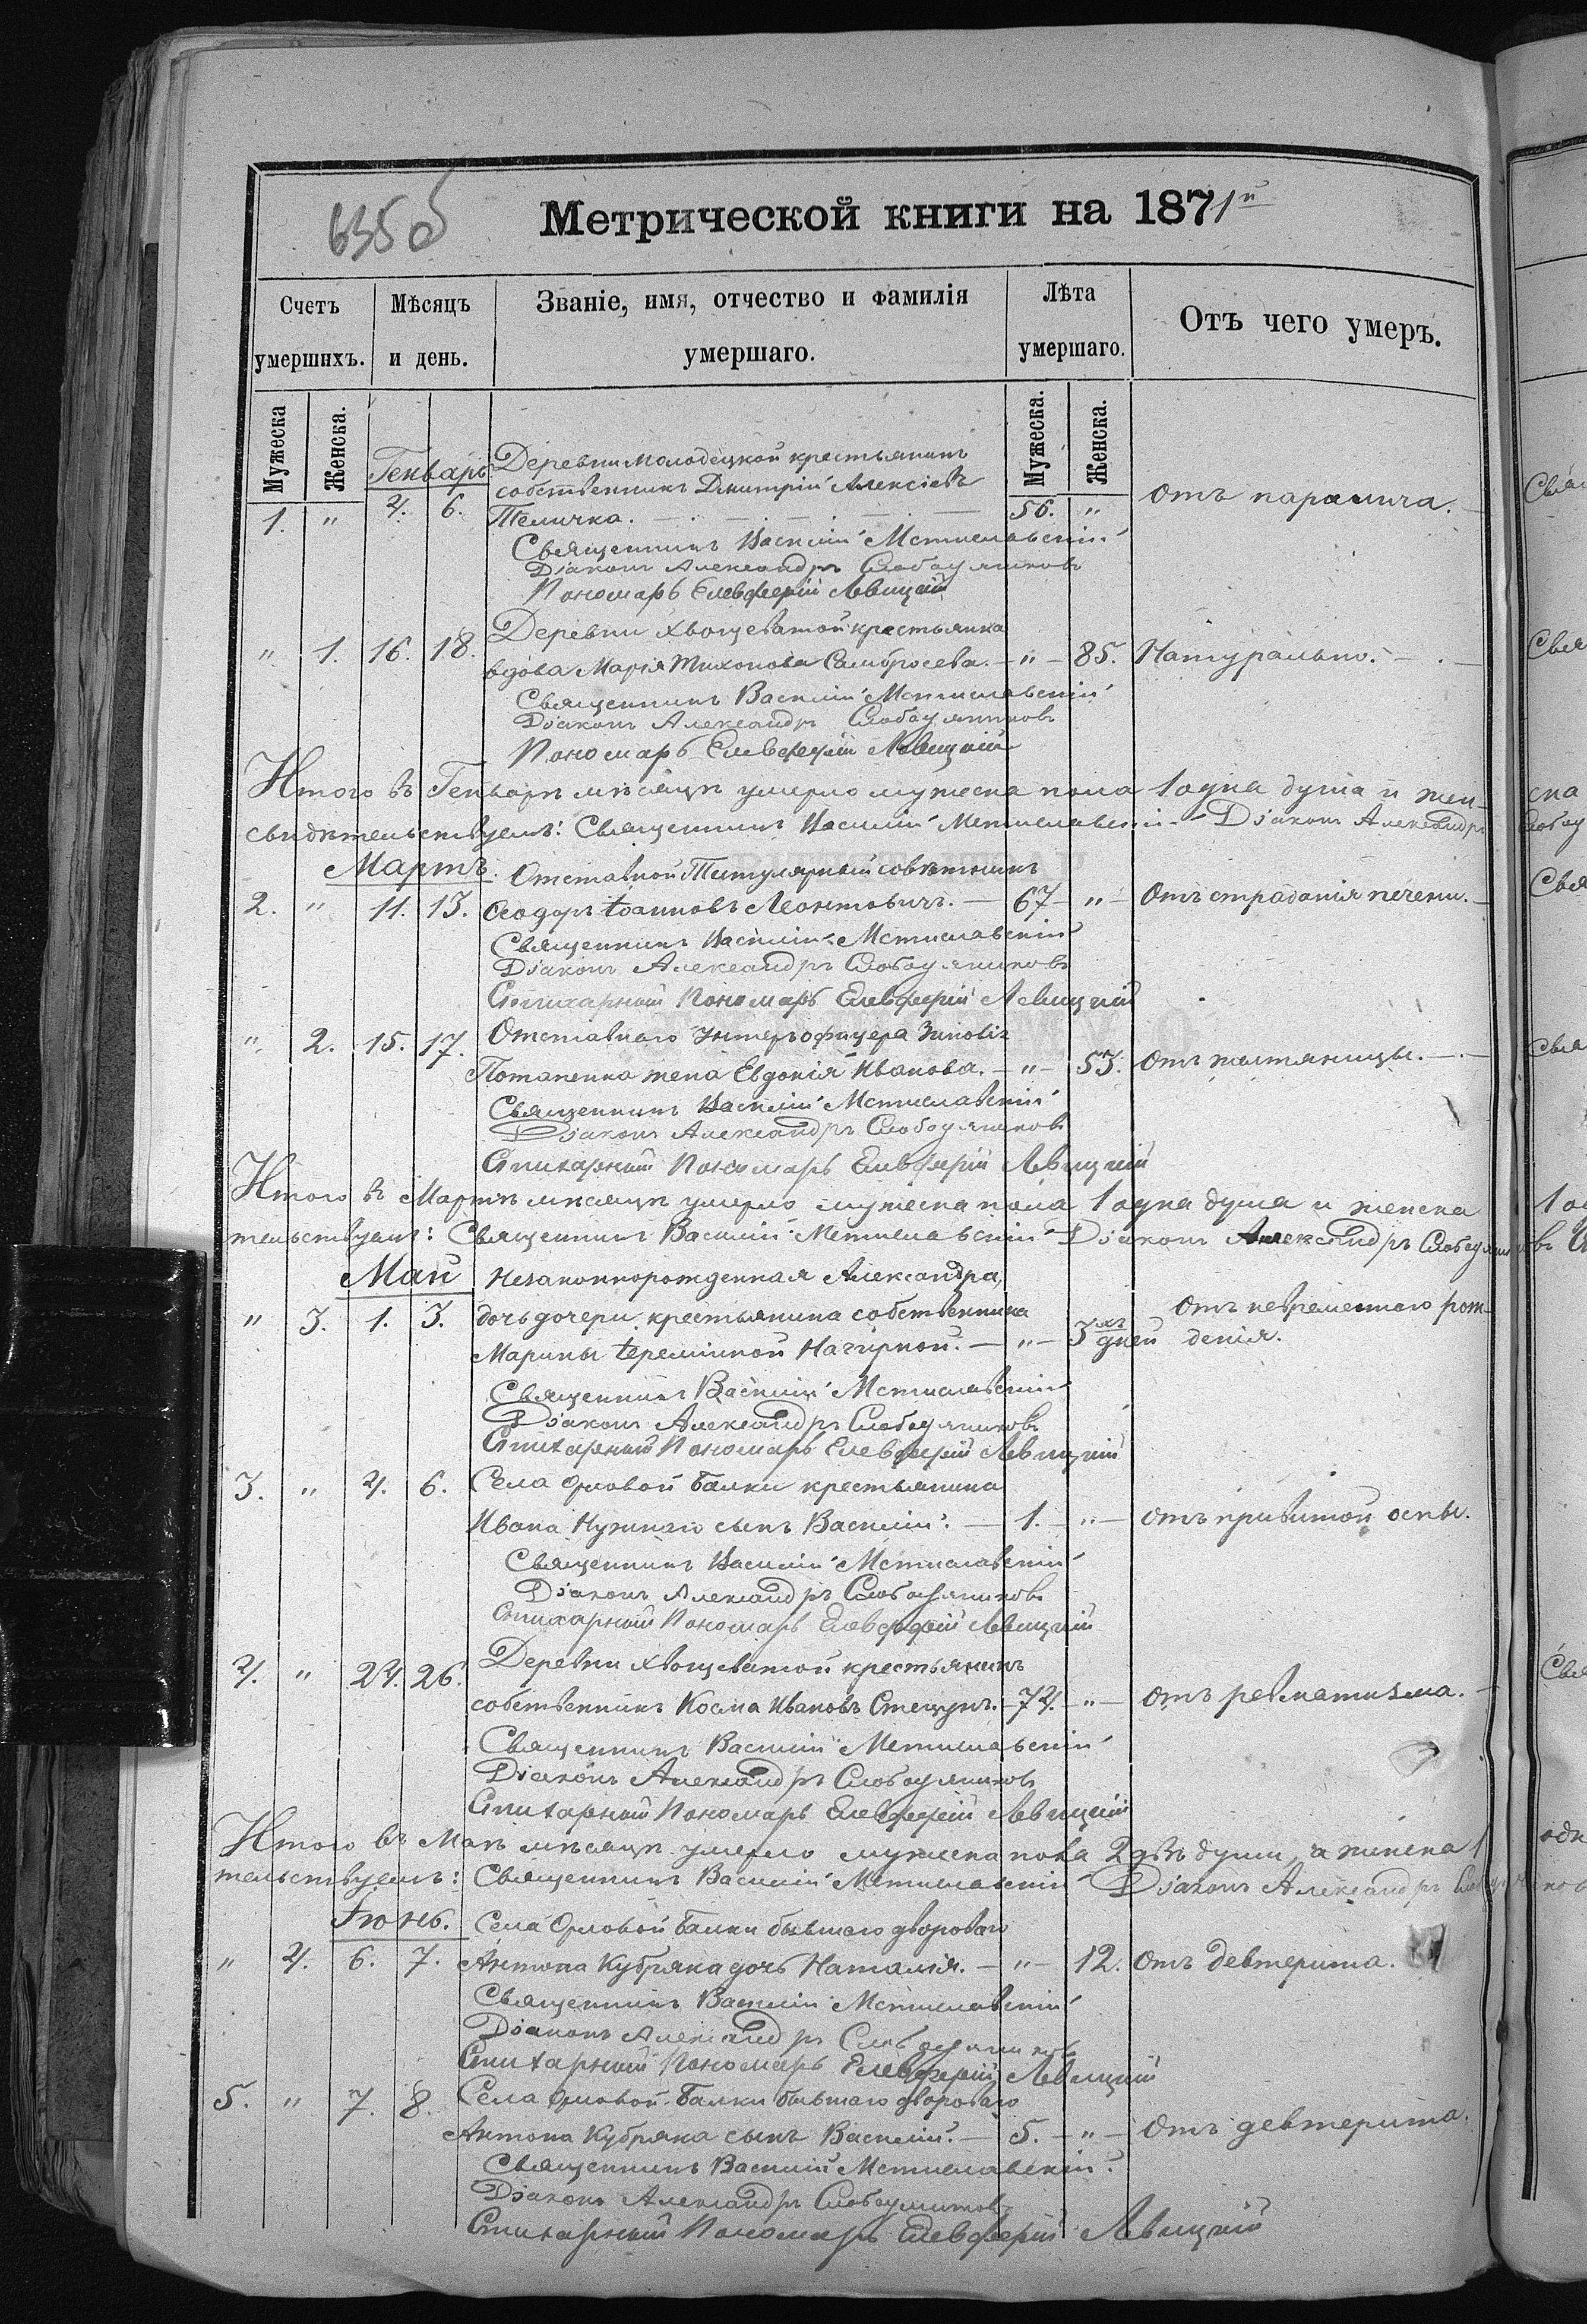 635об
Метрической книги на 1871й
Счетъ умершихъ.
Мѣсяцъ и день.
Званіе, имя, отчество и фамилія умершаго.
Лѣта умершаго.
Отъ чего умеръ.
Мужеска
Женска.
Мужеска.
Женска.
Генварь
Деревни Молодецкой крестьянинъ
собственникъ Димитрій Алексіевъ
1. " 4. 6. Теличка. 56. " отъ паралича.
Священникъ Василій Мстиславскій
Діаконъ Александръ Слободяниковъ
Пономарь Елевферій Левицкій
Деревни Хвощеватой крестьянка
" 1. 16. 18. вдова Марія Тихонова Самбросева. " 85. Натурально.
Священникъ Василій Мстиславскій
Діаконъ Александръ Слободяниковъ
Пономарь Елевферій Левицкій
Итого въ Генварѣ мѣсяцѣ умерло мужеска пола 1 одна душа и жен-
свидѣтельствуемъ: Священникъ Василій Мстиславскій Діаконъ Александръ
Мартъ.
Отставной Титулярный совѣтникъ
2. " 11. 13. Ѳеодоръ Іоанновъ Леонтовичъ. 67 " Отъ страданія печени.
Священникъ Василій Мстиславскій
Діаконъ Александръ Слободяниковъ
Стихарный Пономарь Елевферій Левицкій
" 2. 15. 17. Отставнаго Унтеръ офицера Зиновія
Потапенка жена Евдокія Иванова. " 53. Отъ
Священникъ Василій Мстиславскій
Діаконъ Александръ Слободяниковъ
Стихарный Пономарь Елевферій Левицкій
Итого въ Мартѣ мѣсяцѣ умерло мужеска пола 1 одна душа и женска
тельствуемъ: Священникъ Василій Мстиславскій Діаконъ Александръ Слободяниковъ
Май
Незаконнорожденная Александра,
" 3. 1. 3. дочь дочери крестьянина собственника
Марины Іереміиной Нагирной. " 3хъ дней Отъ невременнаго рож-
денія.
Священникъ Василій Мстиславскій
Діаконъ Александръ Слободяниковъ
Стихарный Пономарь Елевферій Левицкій
3. " 4. 6. Села Орловой Балки крестьянина
Ивана Нужнаго сынъ Василій. 1. " Отъ привитой оспы.
Священникъ Василій Мстиславскій
Діаконъ Александръ Слободяниковъ
Стихарный Пономарь Елевферій Левицкій
4. " 24. 26. Деревни Хвощеватой крестьянинъ
собственникъ Косма Ивановъ Стецунъ. 74. " Отъ ревматизма.
Священникъ Василій Мстиславскій
Діаконъ Александръ Слободяниковъ
Стихарный Пономарь Елевферій Левицкій
Итого въ Маѣ мѣсяцѣ умерло мужеска пола 2 двѣ души, а женска 1
тельствуемъ: Священникъ Василій Мстиславскій Діаконъ Александръ
Іюнь.
Села Орловой Балки бывшаго двороваго
" 4. 6. 7. Антона Кубряка дочь Наталія. " 12. Отъ девтерита.
Священникъ Василій Мстиславскій
Діаконъ Александръ Слободяниковъ
Стихарный Пономарь Елевферій Левицкій
5. " 7. 8. Села Орловой Балки бывшаго двороваго
Антона Кубряка сынъ Василій. 5. " Отъ девтерита.
Священникъ Василій Мстиславскій
Діаконъ Александръ Слободяниковъ
Стихарный Пономарь Елевферій Левицкій